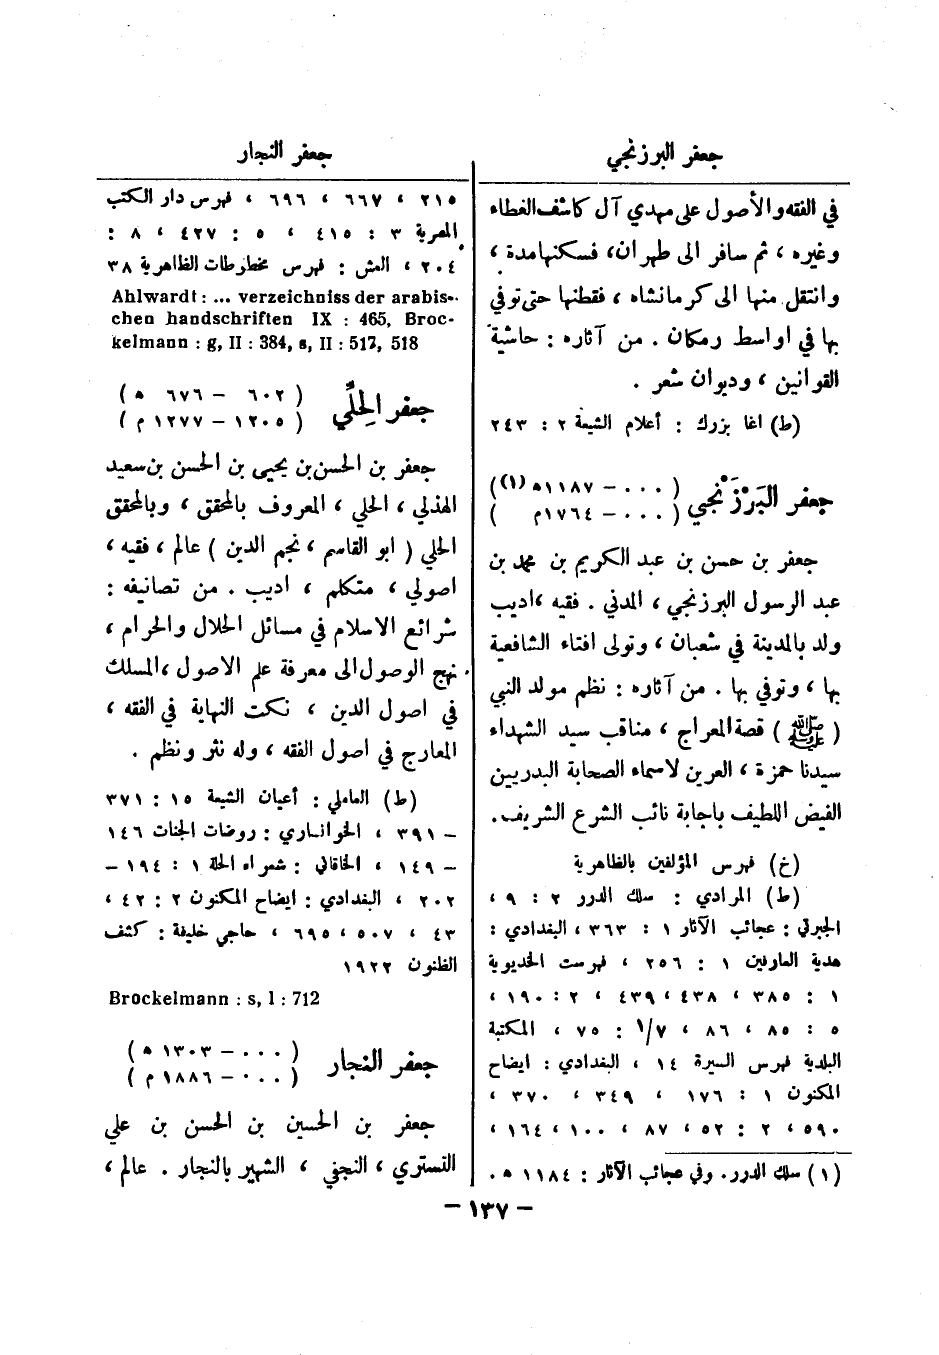 جعفر البرزنجي
في الفقه والأصول على مهدي آل كاشف الغطاء
وغيره ، ثم سافر الى طهران، فسكنها مدة ،
وانتقل منها الى كرمانشاه ، فقطنها حتى توفي
بها في اواسط رمكان . من آثاره : حاشية
القوانين ، وديوان شعر .
(ط) اغا بزرك : أعلام الشيعة ٢ : ٢٤٣
جعفر البَرْزَنْجي ( ٠٠٠ – ١١٨٧ ه(١))
( ٠٠٠ – ١٧٦٤م )
جعفر بن حسن بن عبد الكريم بن محمد بن
عبد الرسول البرزنجي ، المدني . فقيه ،اديب
ولد بالمدينة في شعبان ، وتولى افتاء الشافعية
بها ، وتوفي بها . من آثاره : نظم مولد النبي
( ﷺ ) قصة المعراج ، مناقب سيد الشهداء
سيدنا حمزة ، العرين لاسماء الصحابة البدريين
الفيض اللطيف باجابة نائب الشرع الشريف.
(خ) فهرس المؤلفين بالظاهرية
(ط) المرادي : سلك الدرر ٢ : ٩ ،
الجبرتي : عجائب الآثار ١ : ٣٦٣ ، البغدادي :
هدية العارفين ١ : ٢٥٦ ، فهرست الخديوية
١ : ٣٨٥ ، ٤٣٨ ، ٤٣٩ ، ٢ : ١٩٠ ،
٥ : ٨٥ ، ٨٦ ، ١/٧ : ٧٥ ، المكتبة
البلدية فهرس السيرة ١٤ ، البغدادي : ايضاح
المكنون ١ : ١٧٦ ، ٣٤٩ ، ٣٧٠ ،
٥٩٠ ، ٢ : ٥٢ ، ٨٧ ، ١٠٠ ، ١٦٤ ،
(١) سلك الدرر. وفي عجائب الآثار : ١١٨٤ ه .
جعفر النجار
٢١٥ ، ٦٦٧ ، ٦٩٦ ، فهرس دار الكتب
المصرية ٣ : ٤١٥ ، ٥ : ٤٢٧ ، ٨ :
٢٠٤ ، العش : فهرس مخطوطات الظاهرية ٣٨
Ahlwardt : ... verzeichniss der arabis-
chen handschriften IX : 465, Broc-
kelmann : g, II : 384, s, II : 517, 518
جعفر الحِلِّي ( ٦٠٢ – ٦٧٦ ه )
( ١٢٠٥ – ١٢٧٧ م )
جعفر بن الحسن بن يحيى بن الحسن بن سعيد
الهذلي ، الحلي ، المعروف بالمحقق ، وبالمحقق
الحلي ( ابو القاسم ، نجم الدين ) عالم ، فقيه ،
اصولي ، متكلم ، اديب . من تصانيفه :
شرائع الاسلام في مسائل الحلال والحرام ،
نهج الوصول الى معرفة علم الاصول ، المسلك
في اصول الدين ، نكت النهاية في الفقه ،
المعارج في اصول الفقه ، وله نثر ونظم .
(ط) العاملي : أعيان الشيعة ١٥ : ٣٧١
– ٣٩١ ، الخوانساري : روضات الجنات ١٤٦
– ١٤٩ ، الخاقاني : شعراء الحلة ١ : ١٩٤ –
٢٠٢ ، البغدادي : ايضاح المكنون ٢ : ٤٢ ،
٤٣ ، ٥٠٧ ، ٦٩٥ ، حاجي خليفة : كشف
الظنون ١٩٢٢
Brockelmann : s, I : 712
جعفر النجار ( ٠٠٠ – ١٣٠٣ ه )
( ٠٠٠ – ١٨٨٦ م )
جعفر بن الحسين بن الحسن بن علي
التستري ، النجفي ، الشهير بالنجار . عالم ،
– ١٣٧ –